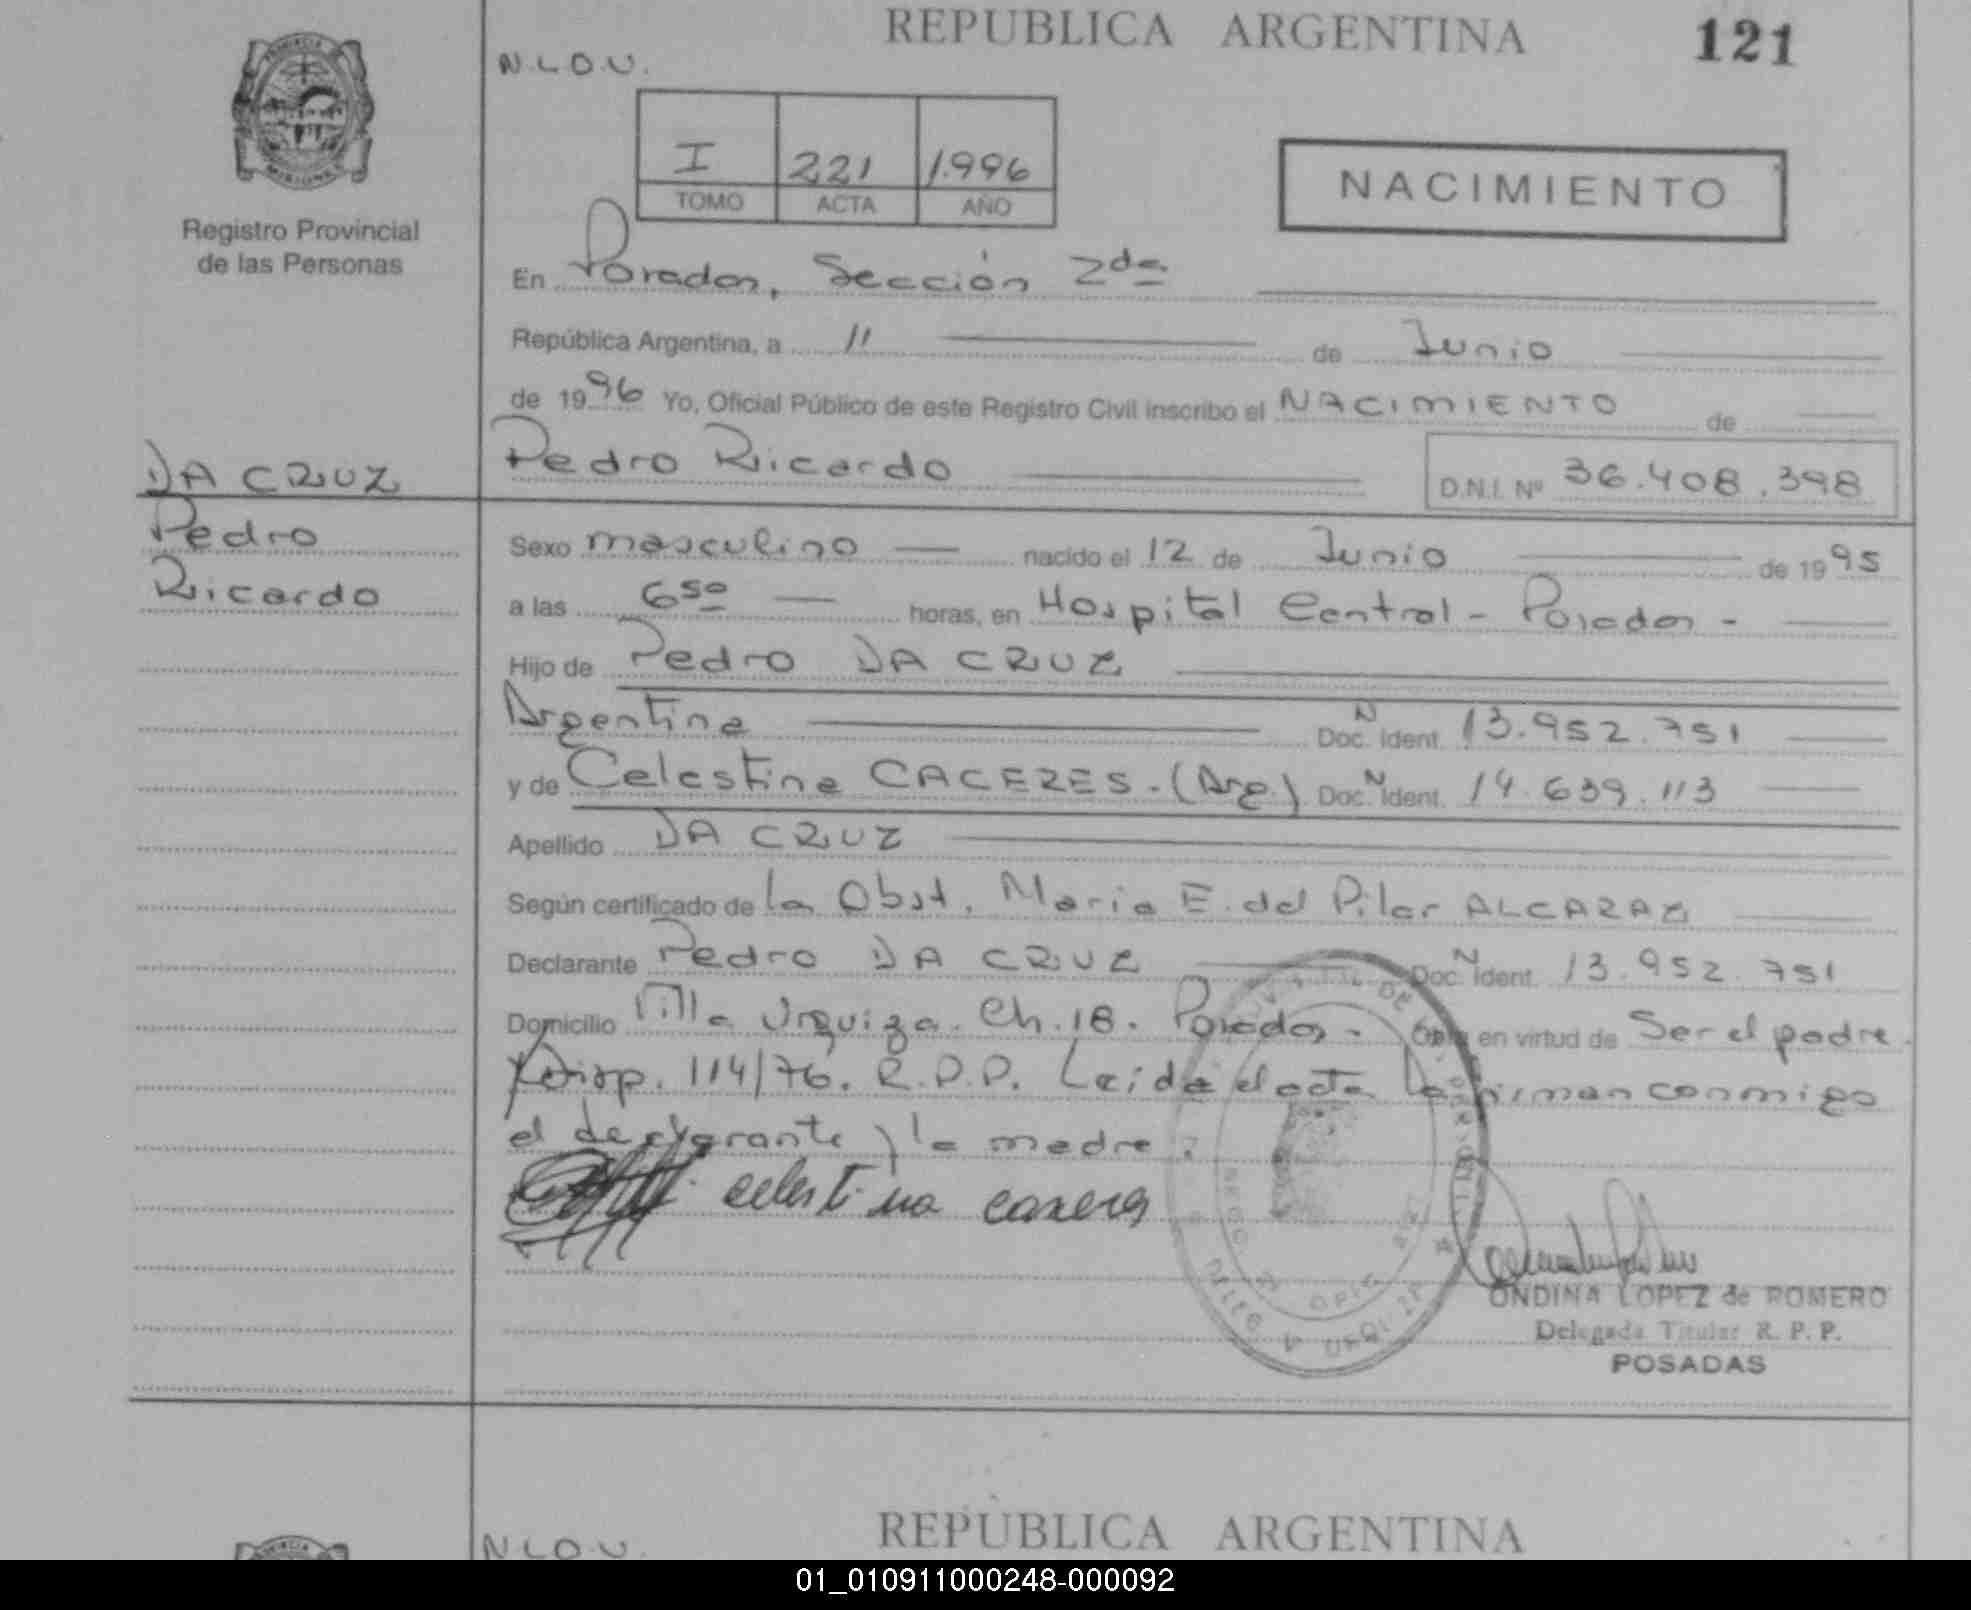 REPUBLICA ARGENTINA
121
N.L.O.U.
I 221 1.996
TOMO ACTA AÑO
NACIMIENTO
PROVINCIA
MISIONES
Registro Provincial
de las Personas
En Posadas, Sección 2da
República Argentina, a 11 de Junio
de 1996 Yo, Oficial Público de este Registro Civil inscribo el NACIMIENTO de
Pedro Ricardo
D.N.I. Nº 36.408.398
DA CRUZ
Pedro
Ricardo
Sexo masculino nacido el 12 de Junio de 1995
a las 6 50 horas, en Hospital Central - Posadas -
Hijo de Pedro DA CRUZ
Argentina Doc. Ident. N 13.952.751
y de Celestina CACERES. (Arg.) Doc. Ident. N 14.639.113
Apellido DA CRUZ
Según certificado de la Obst. Maria E. del Pilar ALCARAZ
Declarante Pedro DA CRUZ Doc. Ident. N 13.952.751
Domicilio Villa Urquiza. Ch. 18. Posadas - en virtud de Ser el padre.
Disp. 114/76. R.P.P. Leida el acta la firman conmigo
el declarante y la madre.
celestina caseres
ONDINA LOPEZ de ROMERO
Delegada Titular R. P. P.
POSADAS
REPUBLICA ARGENTINA
N.L.O.U.
01_010911000248-000092